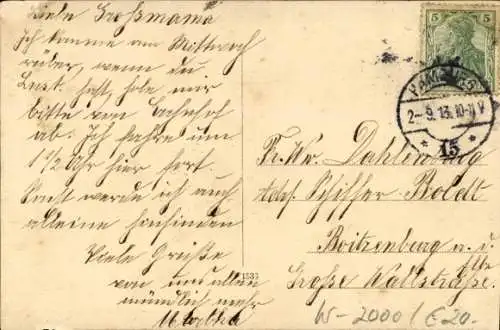 Liebe Großmama
Ich komme am Mittwoch
rüber, wenn du
Lust hast, hole mir
bitte vom Bahnhof
ab. Ich fahre um
1 1/2 Uhr hier fort.
Sonst werde ich auch
alleine hinfinden
Viele Grüße
von uns allen
mündlich mehr
5
5
HAMBURG
2-9.13.10-11V
* 15 *
Fr. Ww. Dahlenburg
Adr. Schiffer Boldt
Boitzenburg a. d.
Elbe
Große Wallstraße.
1533
W-2000/€20.-